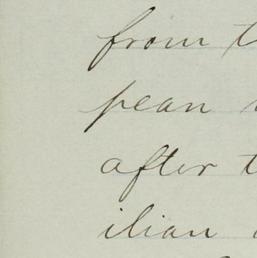 from t
pean
after t
ilian